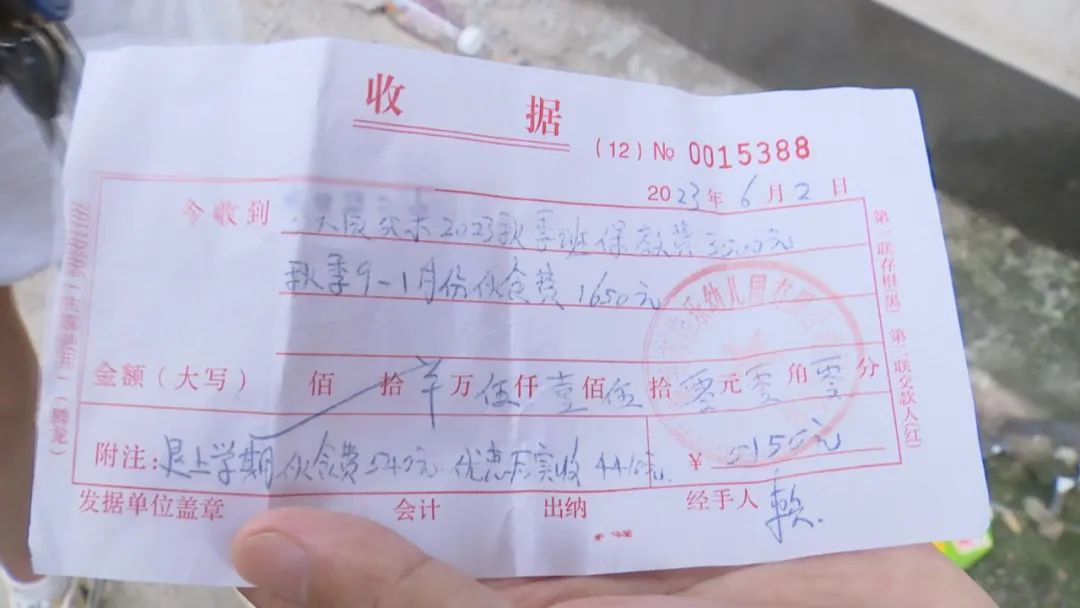 收 据
(12) № 0015388
2023年 6月 2日
今收到 2023秋季班保教费3500元
秋季9-1月份伙食费1650元
金额(大写) 佰 拾 ¥ 万 伍 仟 壹 佰 伍 拾 零 元 零 角 零 分
附注: 退上学期伙食费540元 优惠后实收4410元. ¥ 5150元
发据单位盖章 会计 出纳 经手人 赖
第一联存根(黑) 第二联交款人(红)
(腾龙)
幼儿园有限公司